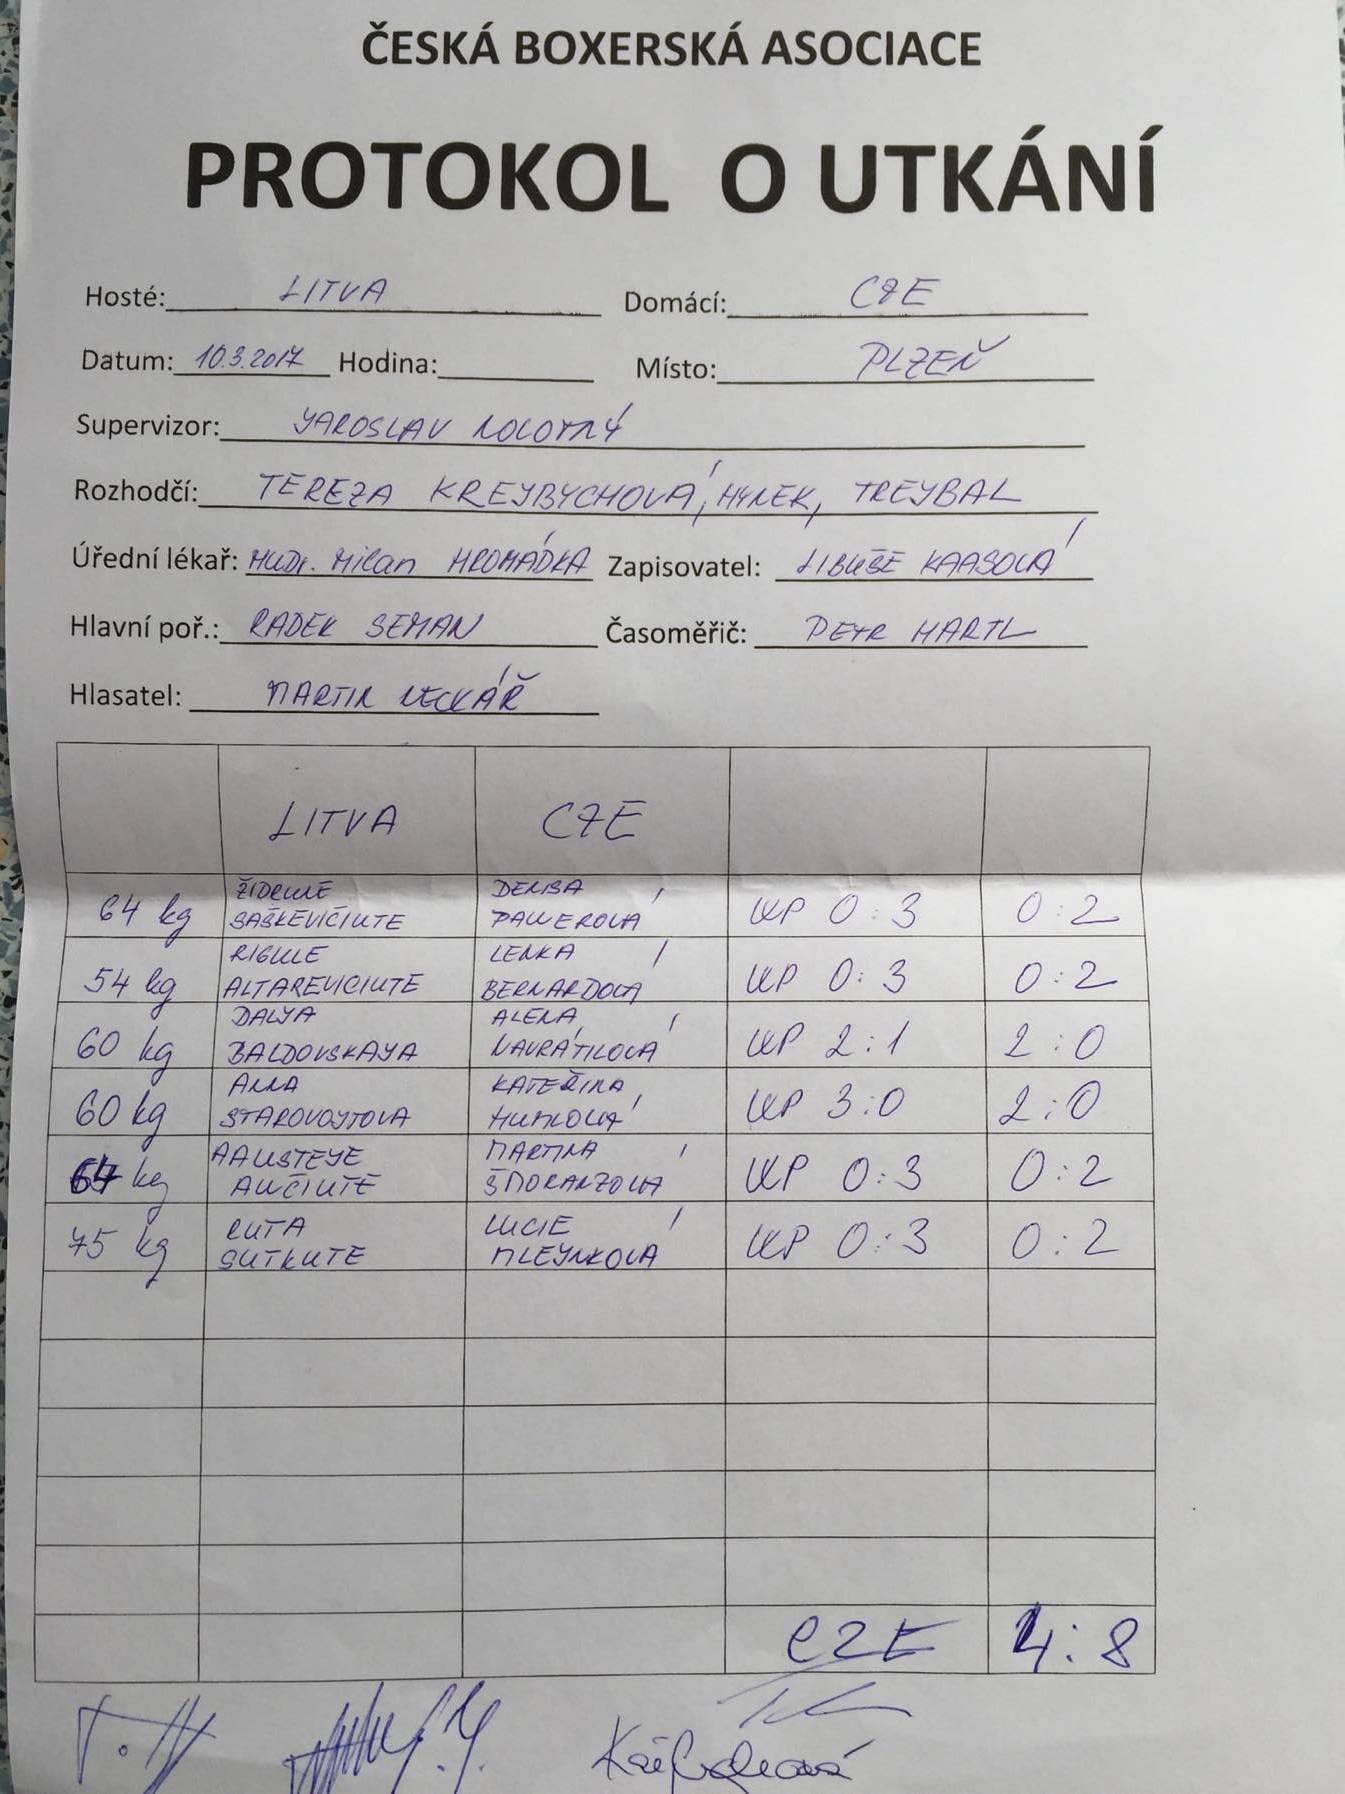 ČESKÁ BOXERSKÁ ASOCIACE
PROTOKOL O UTKÁNÍ
Hosté: LITVA Domácí: CZE
Datum: 10.3.2017 Hodina: Místo: PLZEŇ
Supervizor: YAROSLAV NOVOTNÝ
Rozhodčí: TEREZA KREYBYCHOVÁ, HYNEK, TREYBAL
Úřední lékař: MUDr. Milan HROMÁDKA Zapisovatel: LIBUŠE KAASOVÁ
Hlavní poř.: RADEK SEMAN Časoměřič: PETR HARTL
Hlasatel: MARTIN NECKÁŘ
LITVA CZE
64 kg ŽIDRUNE SAŠKEVIČIUTE DENISA PAWEROVÁ WP 0:3 0:2
54 kg RIGUE ALTAREVICIUTE LENKA BERNARDOVÁ WP 0:3 0:2
60 kg DALYA BALDOVSKAYA ALENA NAVRÁTILOVÁ WP 2:1 2:0
60 kg ANNA STAROVOYTOVA KATEŘINA WP 3:0 2:0
64 kg AUČIUTĖ MARTINA ŠMORANZOVÁ WP 0:3 0:2
75 kg RUTA SUTKUTE LUCIE MLEYNKOVÁ WP 0:3 0:2
CZE 4:8